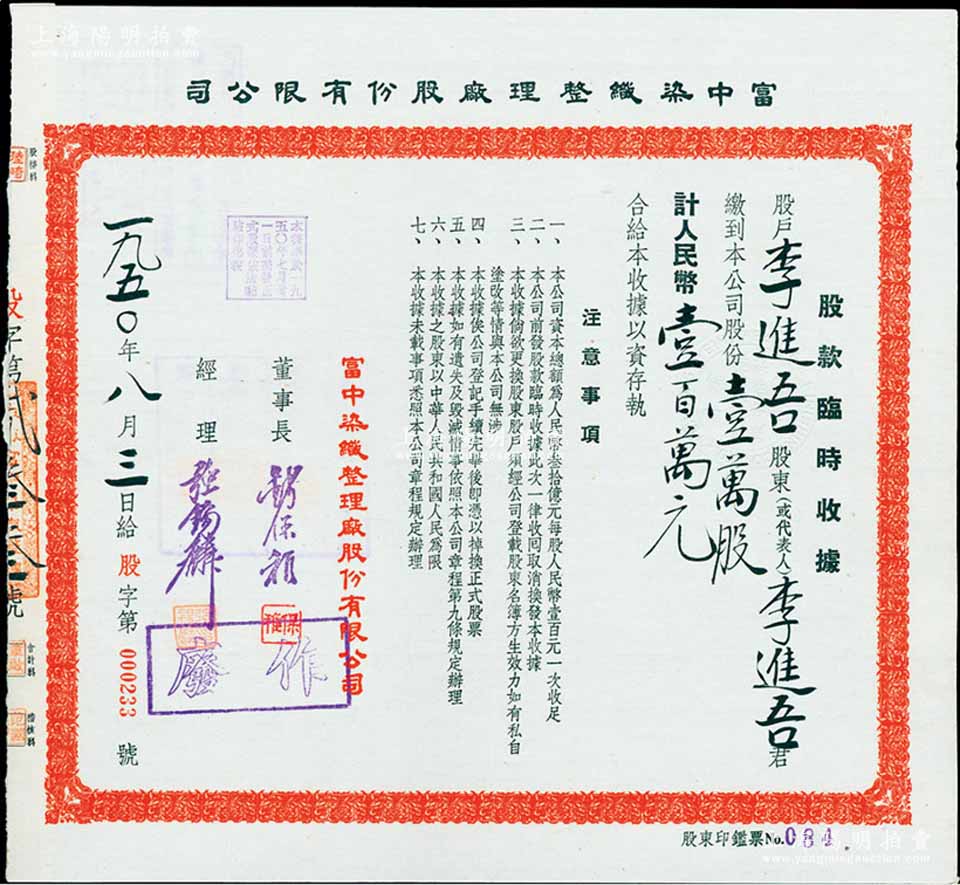 上海陽明拍賣
www.yangmingauction.com
富中染織整理廠股份有限公司
股款臨時收據
股戶李進吾股東(或代表人)李進吾君
繳到本公司股份壹萬股
計人民幣壹百萬元
合給本收據以資存執
注意事項
一、本公司資本總額為人民幣叁拾億元每股人民幣壹百元一次收足
二、本公司前發股款臨時收據此次一律收回取消換發本收據
三、本收據倘欲更換股東股戶須經公司登載股東名簿方生效力如有私自
塗改等情與本公司無涉
四、本收據俟公司登記手續完畢後即憑以掉換正式股票
五、本收據如有遺失及毀滅情事依照本公司章程第九條規定辦理
六、本收據之股東以中華人民共和國人民為限
七、本收據未載事項悉照本公司章程規定辦理
富中染織整理廠股份有限公司
董事長
經理
作廢
一九五〇年八月三日給股字第000233號
股字第貳叁叁號
股務科
會計科
稽核科
股東印鑑票No.084
上海陽明拍賣
www.yangmingauction.com